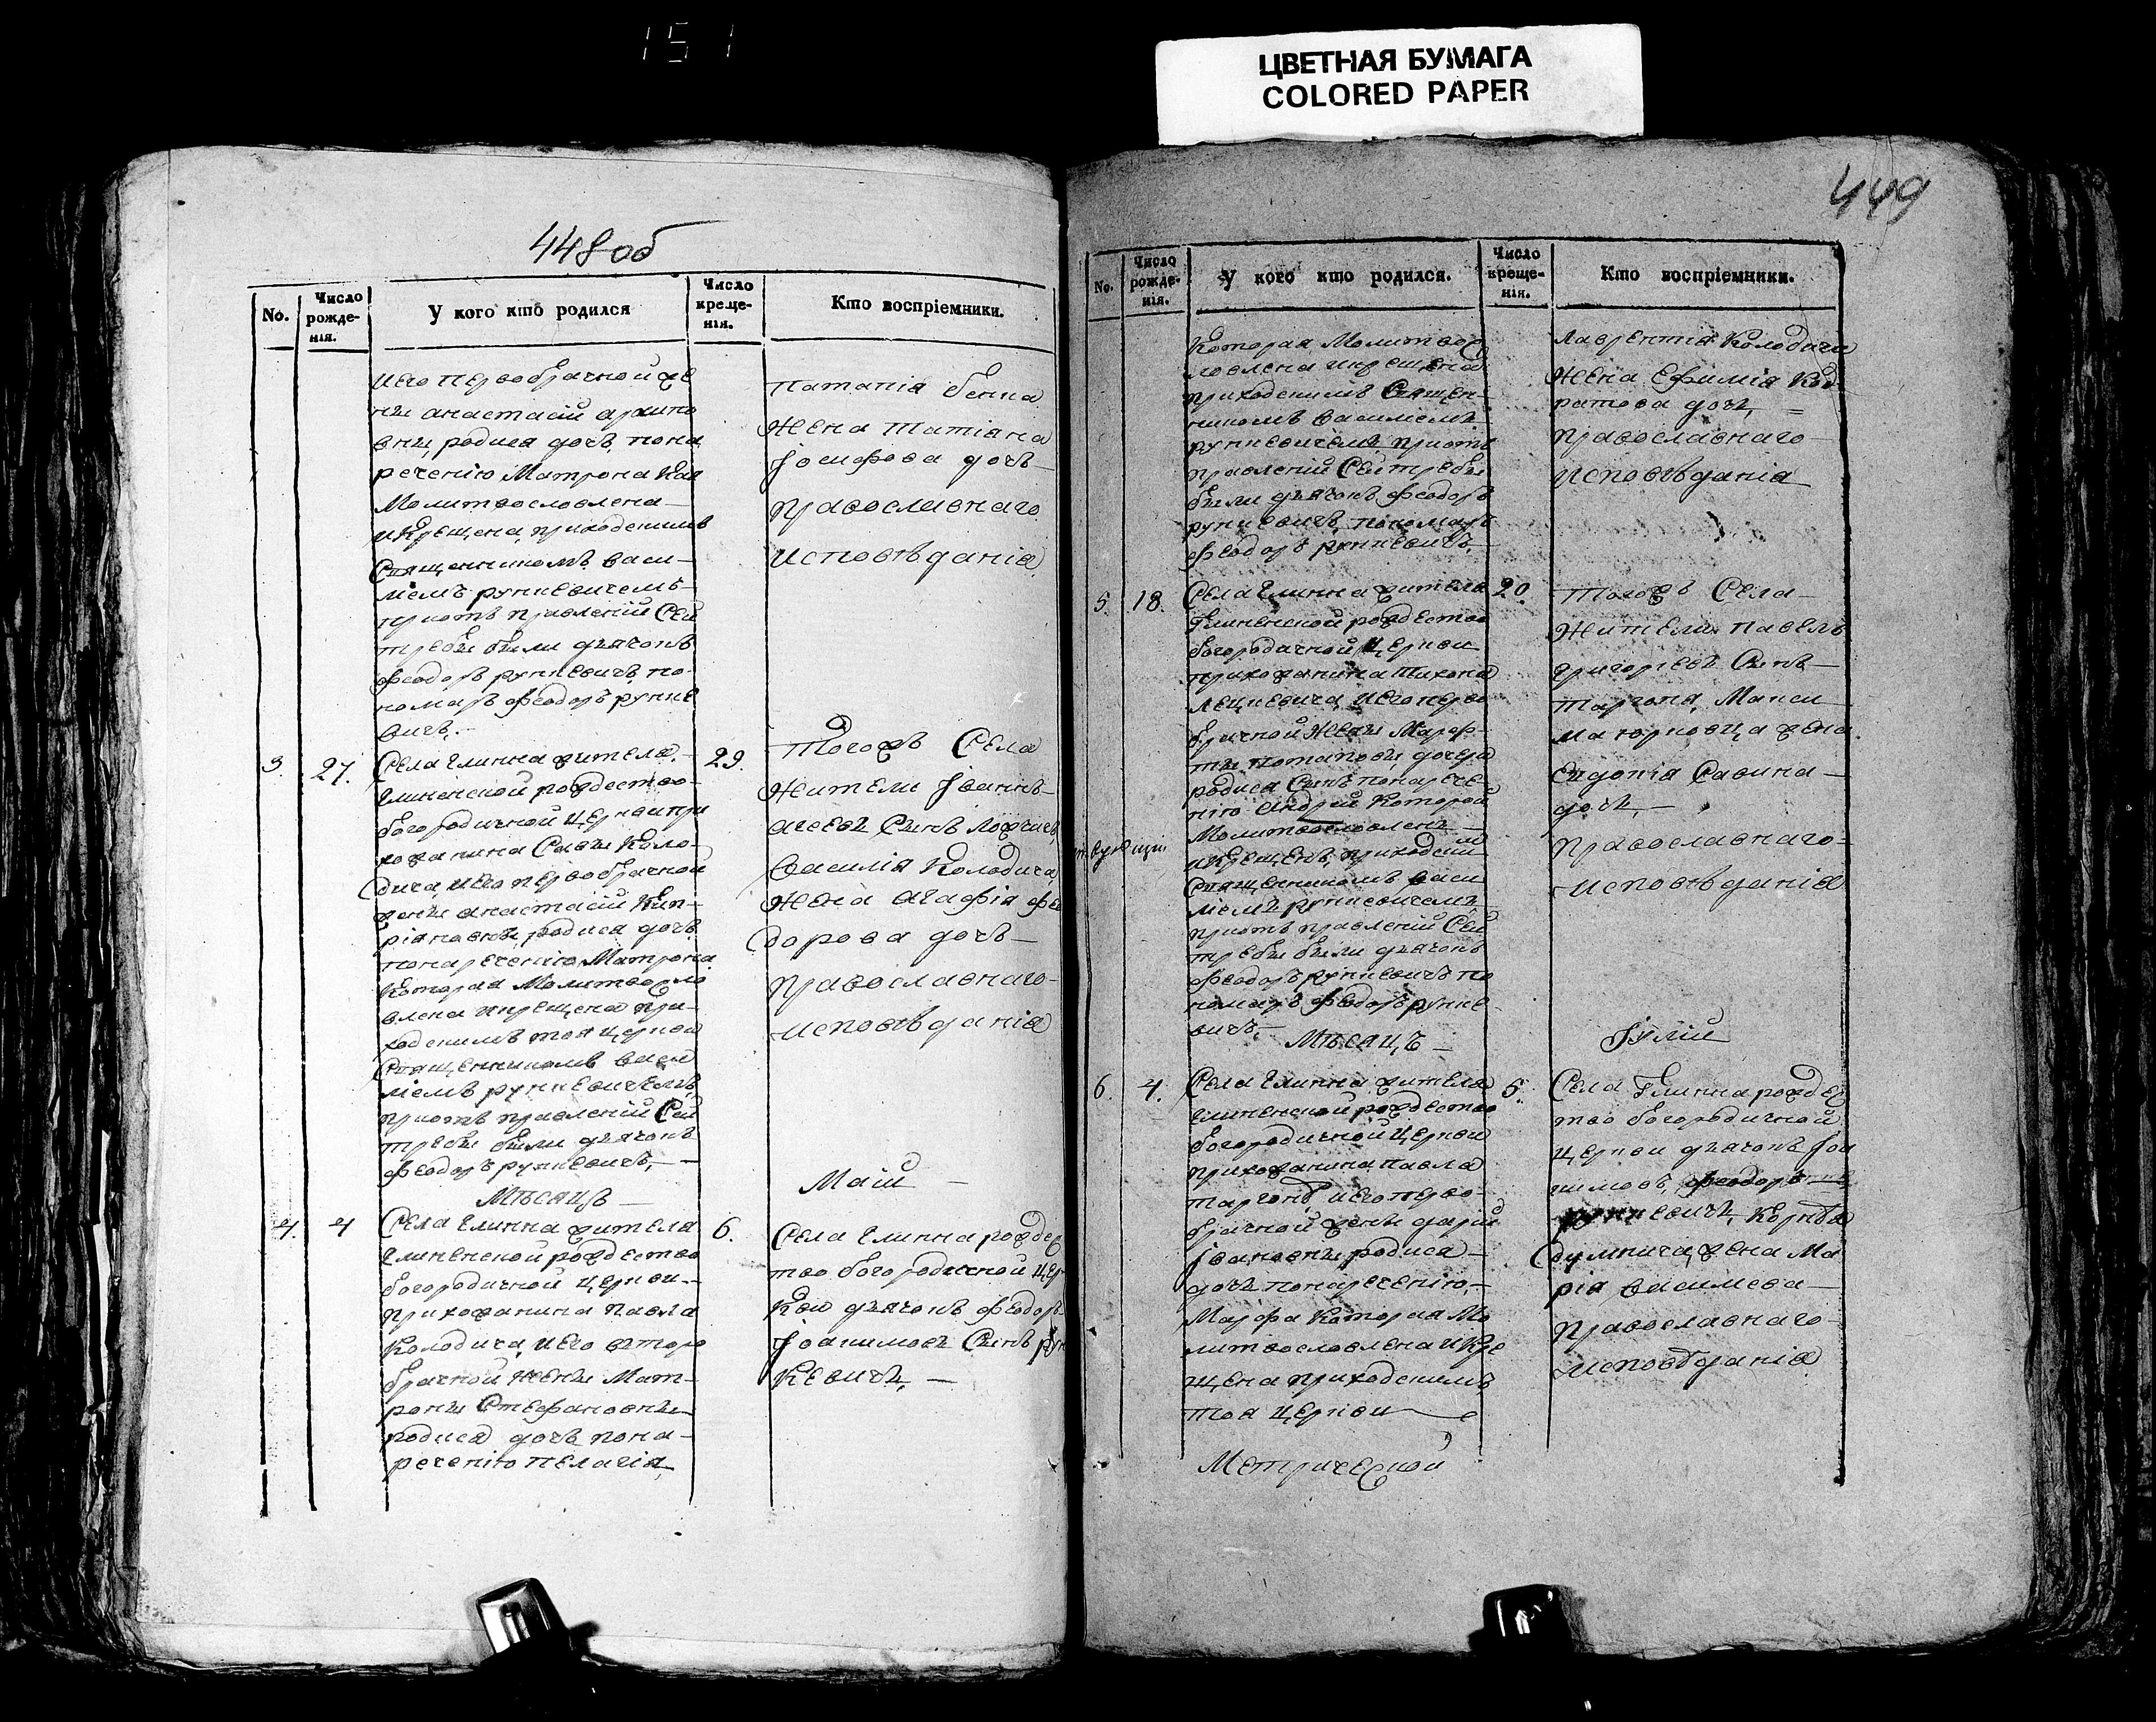 151
ЦВЕТНАЯ БУМАГА
COLORED PAPER
448об
No.
Число рожде-нія.
У кого кто родился
Число креще-нія.
Кто воспріемники.
иего первобрачной же
ны анастасіи
вны, родися дочъ, пона
речению Матрона Кая
Молитвословлена
икрещена, приходскимъ
Священникомъ васи-
ліемъ рункевичемъ
приотъ правленіи Сей
требы были дьячокъ
феодоръ рункевичъ, по-
номаръ феодоръ рунке
вичъ.
Потапія
жена татіана
Іосифова дочъ
православнаго
исповѣданія
3.
27.
Села глинна жителя
глиненской рождество-
богородичной церкви при
хожанина Савы Коло-
дича иего первобрачной
жены анастасіи Кип-
ріановны, родися дочъ
понаречению, Матрона
которая Молитвосло
влена икрещена при-
ходскимъ тоя церкви
Священникомъ васи
ліемъ рункевичемъ,
приотъ правленіи Сей
требы были дьячокъ
феодоръ рункевичъ,
29.
Тогожъ Села
жители Іоаннъ
Сынъ
василія Колодича
жена агафія фео
дорова дочъ
православнаго
исповѣданія
Мѣсяцъ
Маій
4.
4
Села глинна жителя
глиненской рождество
богородичной церкви
прихожанина Павла
Колодича, иего второ
брачной жены Мат-
роны Стефановны
родися дочъ пона-
речению пелагія,
6.
Села глинна рождес
тво богородичной цер
кви дьячокъ феодоръ
Іоакимовъ Сынъ рун
кевичъ,
449
No.
Число рожде-нія.
У кого кто родился.
Число креще-нія.
Кто воспріемники.
Которая Молитвос
ловлена икрещена
приходскимъ Священ-
никомъ василіемъ
рункевичемъ, приотъ
правленіи Сей требы
были дьячокъ феодоръ
рункевичъ, пономаръ
феодоръ рункевичъ,
Лаврентія Колодича
жена Ефимія Код-
ратова дочъ,
православнаго
исповѣданія
5.
18.
Села глинна жителя
глиненской рождество
богородичной церкви
прихожанина тихона
иего перво
брачной жены Марф-
ты потаповы дочери
родися Сынъ понарече-
нию Андрей Которой
Молитвословленъ
икрещенъ, приходским
Священникомъ васи
ліемъ рункевичемъ,
приотъ правленіи Сей
требы были дьячокъ
феодоръ рункевичъ по
номаръ феодоръ рунке-
вичъ,
20.
Тогожъ Села
жители Павелъ
григорьевъ Сынъ
таргоня, Макси
ма жена
Евдокія Савина
дочъ,
православнаго
исповѣданія
Мѣсяцъ
Іулій
6.
4.
Села глинна жителя
глиненской рождество
богородичной церкви
прихожанина павла
иего перво-
брачной жены даріи
Івановны родися
дочъ понаречению,
Марфа Которая Мо
литвословлена и Кре
щена приходскимъ
тоя церкви
5.
Села Глинна рождес
тво богородичной
церкви дьячокъ Іоа
кимовъ, феодоръ
рункевичъ,
жена Ма
рія василева
православнаго
исповѣданія
Метрической